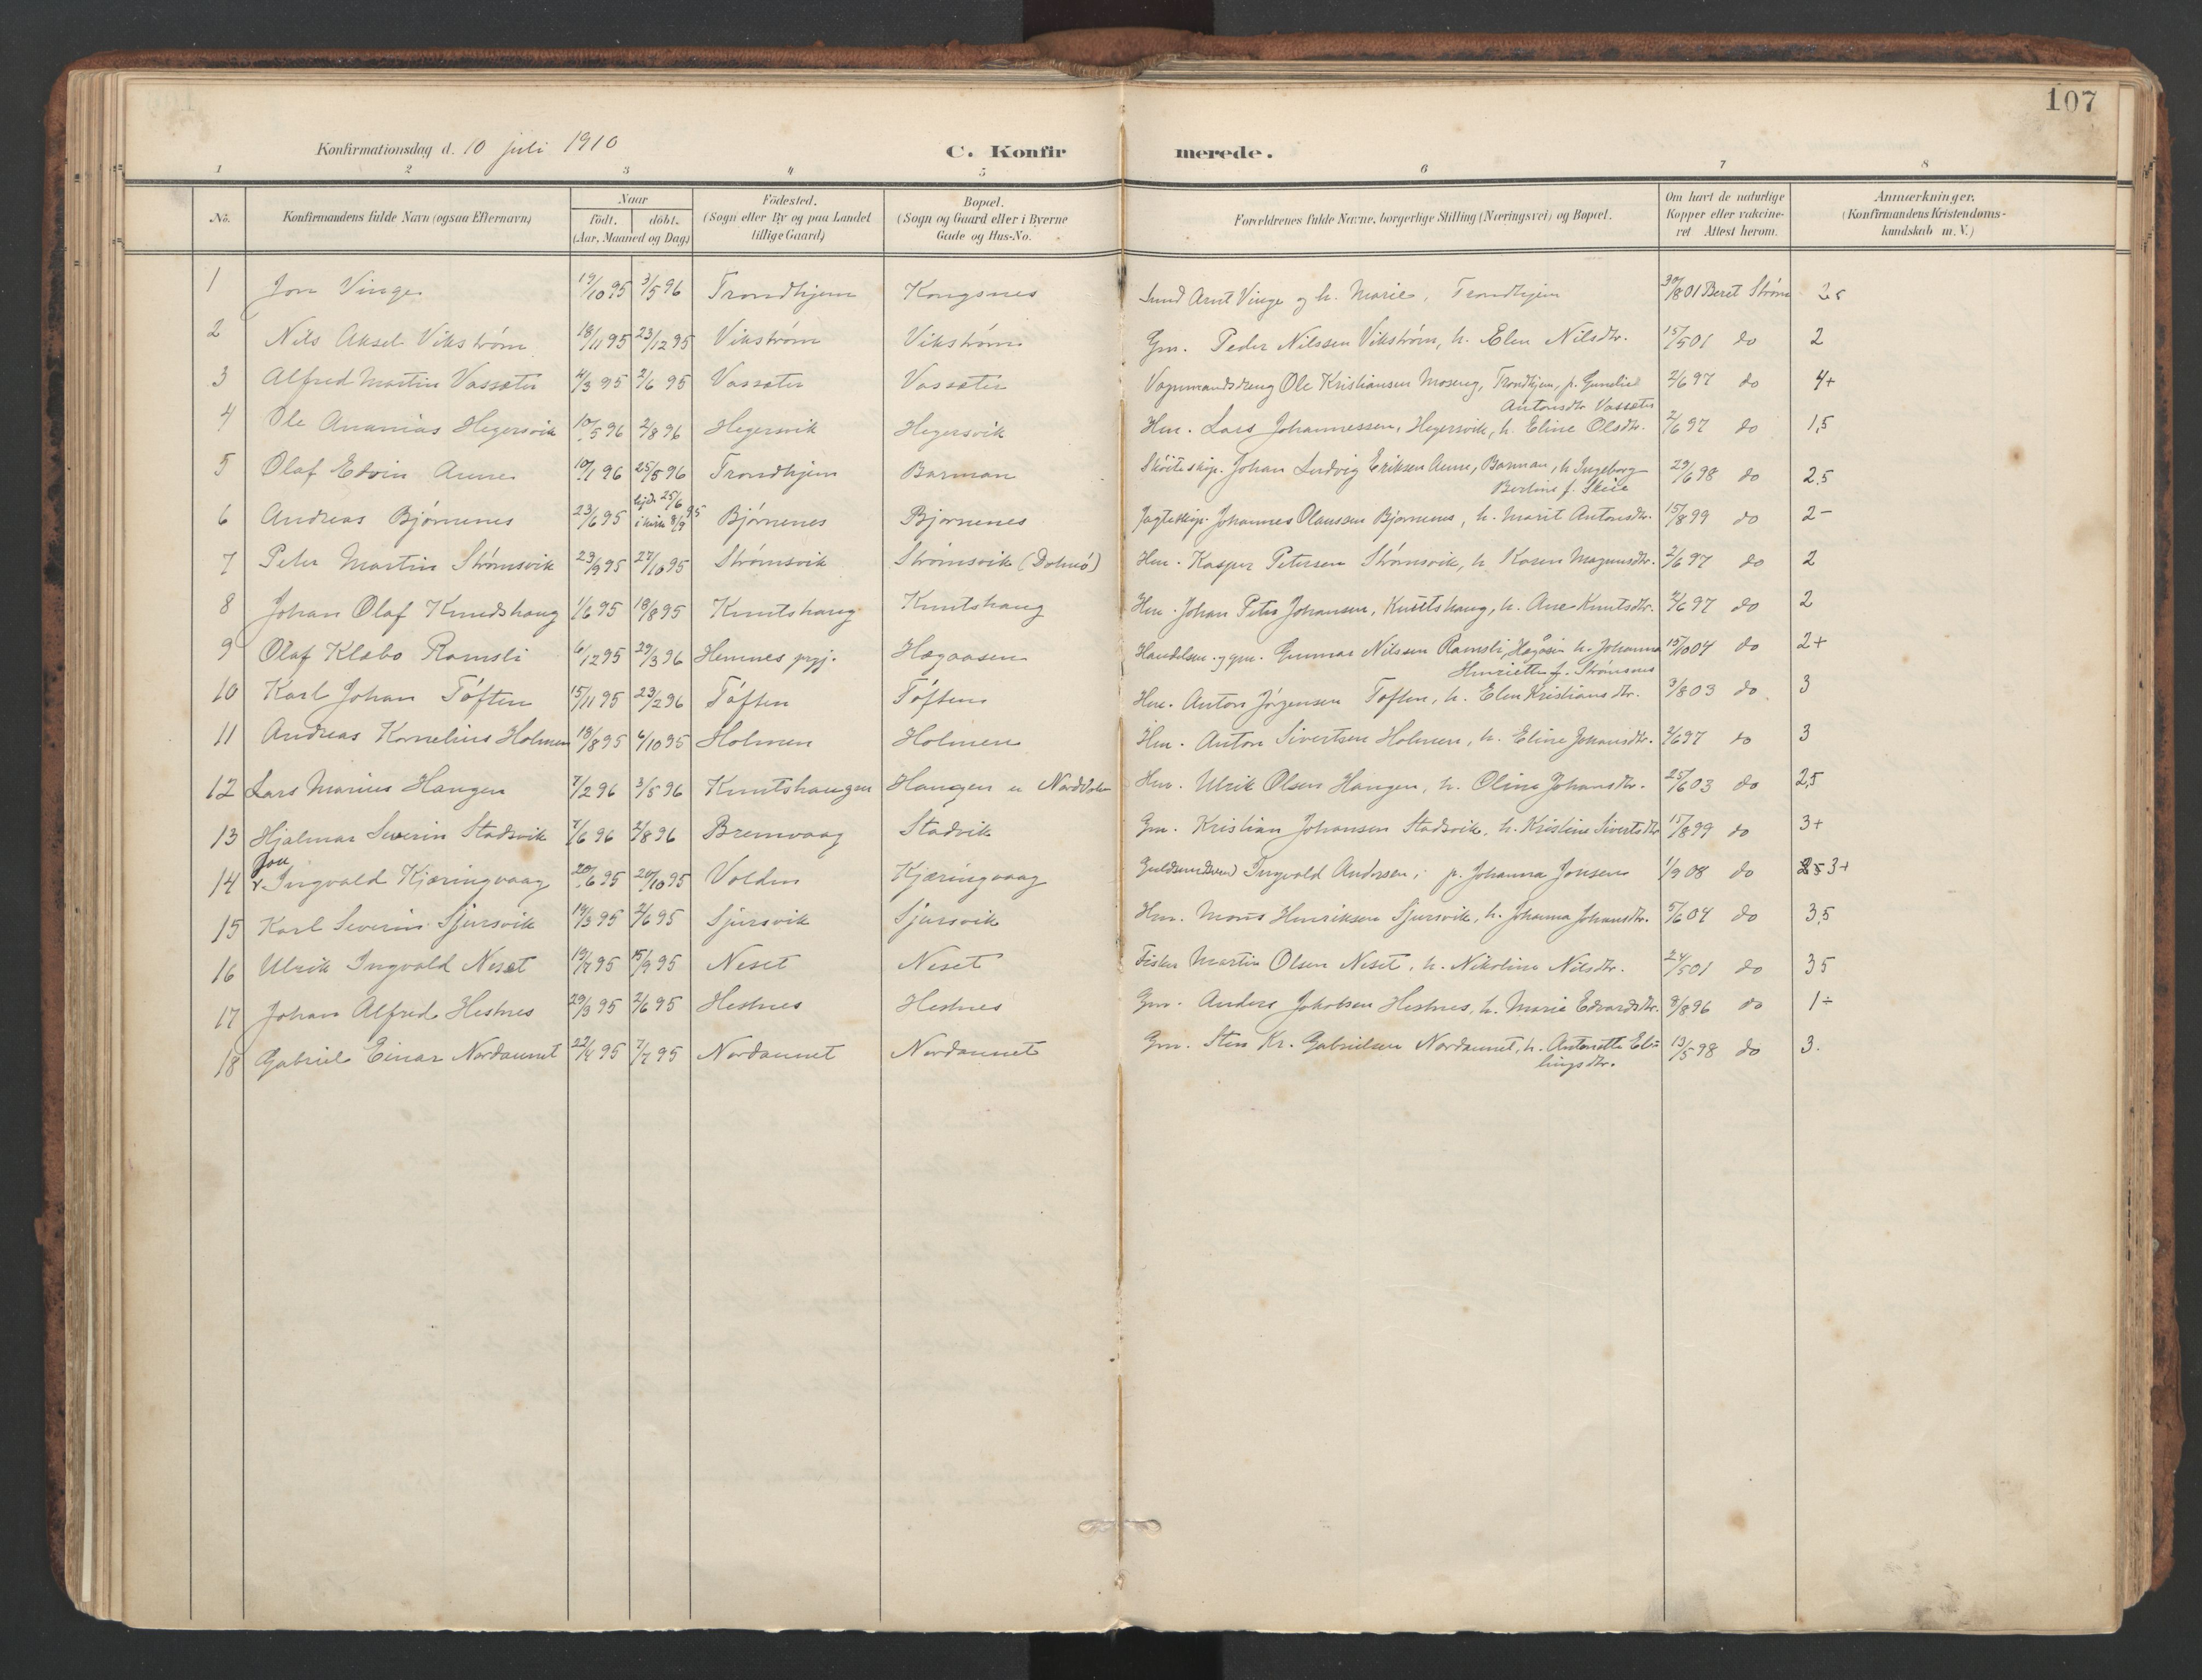 107
Konfirmationsdag d. 10 juli 1910
C. Konfirmerede.
1 2 3 4 5 6 7 8
No. Konfirmandens fulde Navn (ogsaa Efternavn) Naar födt. döbt. (Aar, Maaned og Dag) Födested. (Sogn eller By og paa Landet tillige Gaard) Bopæl. (Sogn og Gaard eller i Byerne Gade og Hus-No. Forældrenes fulde Navne, borgerlige Stilling (Næringsvei) og Bopæl. Om havt de naturlige Kopper eller vakcineret Attest herom. Anmærkninger. (Konfirmandens Kristendomskundskab m. V.)
1 Jon Vinge 19/10 95 3/5 96 Trondhjem Kongsnes Arnt Vinge og h. Marie, Trondhjem 30/8 01 Beret Strøm 2,5
2 Nils Aksel Vikstrøm 18/11 95 23/12 95 Vikstrøm Vikstrøm Gm. Peder Nilssen Vikstrøm, h. Elen Nilsdtr. 15/5 01 do 2
3 Alfred Martin Vassæter 4/3 95 2/6 95 Vassæter Vassæter Vognmandsdreng Ole Kristiansen Moseng, Trondhjem, p. Gunelie Antonsdtr Vassæter 2/6 97 do 4+
4 Ole Ananias Hegersvik 10/5 96 2/8 96 Hegersvik Hegersvik Hm. Lars Johannessen, Hegersvik, h. Eline Olsdtr. 2/6 97 do 1,5
5 Olaf Edvin Aune 10/1 96 25/5 96 Trondhjem Barman Skøiteskip. Johan Ludvig Eriksen Aune, Barman, h. Ingeborg Berline f. Skeie 29/6 98 do 2.5
6 Andreas Bjørnenes 23/6 95 hjd. 25/6 i kirk 8/9 95 Bjørnenes Bjørnenes Jagteskip. Johannes Olaussen Bjørnenes, h. Marit Antonsdtr. 15/8 99 do 2-
7 Peter Martin Strømsvik 23/9 95 27/10 95 Strømsvik Strømsvik (Dolmø) Hm. Kasper Petersen Strømsvik, h. Karen Magnusdtr. 2/6 97 do 2
8 Johan Olaf Knudshaug 1/6 95 18/8 95 Knutshaug Knutshaug Hm. Johan Peter Johansen, Knutshaug, h. Ane Knutsdtr. 2/6 97 do 2
9 Olaf Klæbo Ramsli 6/12 95 29/3 96 Hemnes prgj. Hægaasen Handelsm. og gm. Gunnar Nilssen Ramsli, Hægåsen h. Johanna Henriette f. Strømsnes 15/10 04 do 2+
10 Karl Johan Tøften 15/11 95 23/2 96 Tøften Tøften Hm. Anton Jørgensen Tøften, h. Elen Kristiansdtr. 3/8 03 do. 3
11 Andreas Kornelius Holmen 18/8 95 6/10 95 Holmen Holmen Hm. Anton Sivertsen Holmen, h. Eline Johansdtr. 2/6 97 do 3
12 Lars Marius Haugen 7/2 96 3/5 96 Knutshaugen Haugen Hm. Ulrik Olsen Haugen, h. Oline Johansdtr. 25/6 03 do 2,5
13 Hjalmar Severin Stadsvik 7/6 96 2/8 96 Bremvaag Stadvik Gm. Kristian Johansen Stadsvik, h. Kristine Sivertsdtr 15/8 99 do 3+
14 Jon Ingvald Kjæringvaag 20/6 95 20/10 95 Volden Kjæringvaag Guldsmedsvend Ingvald Andersen, p. Johanna Jonsen 1/9 08 do 3+
15 Karl Severin Sjursvik 14/3 95 2/6 95 Sjursvik Sjursvik Hm. Mons Henriksen Sjursvik, h. Johanna Johansdtr. 5/6 04 do 3,5
16 Ulrik Ingvald Neset 19/7 95 15/9 95 Neset Neset Fisker Martin Olsen Neset, h. Nikoline Nilsdtr. 24/5 01 do 35
17 Johan Alfred Hestnes 29/3 95 2/6 95 Hestnes Hestnes Gm. Anders Jakobsen Hestnes, h. Marie Edvardsdtr. 8/8 96 do 1÷
18 Gabriel Einar Nordaunet 22/4 95 7/7 95 Nordaunet Nordaunet Gm. Sten Kr. Gabrielsen Nordaunet, h. Antonette Elingsdtr. 13/5 98 do 3.